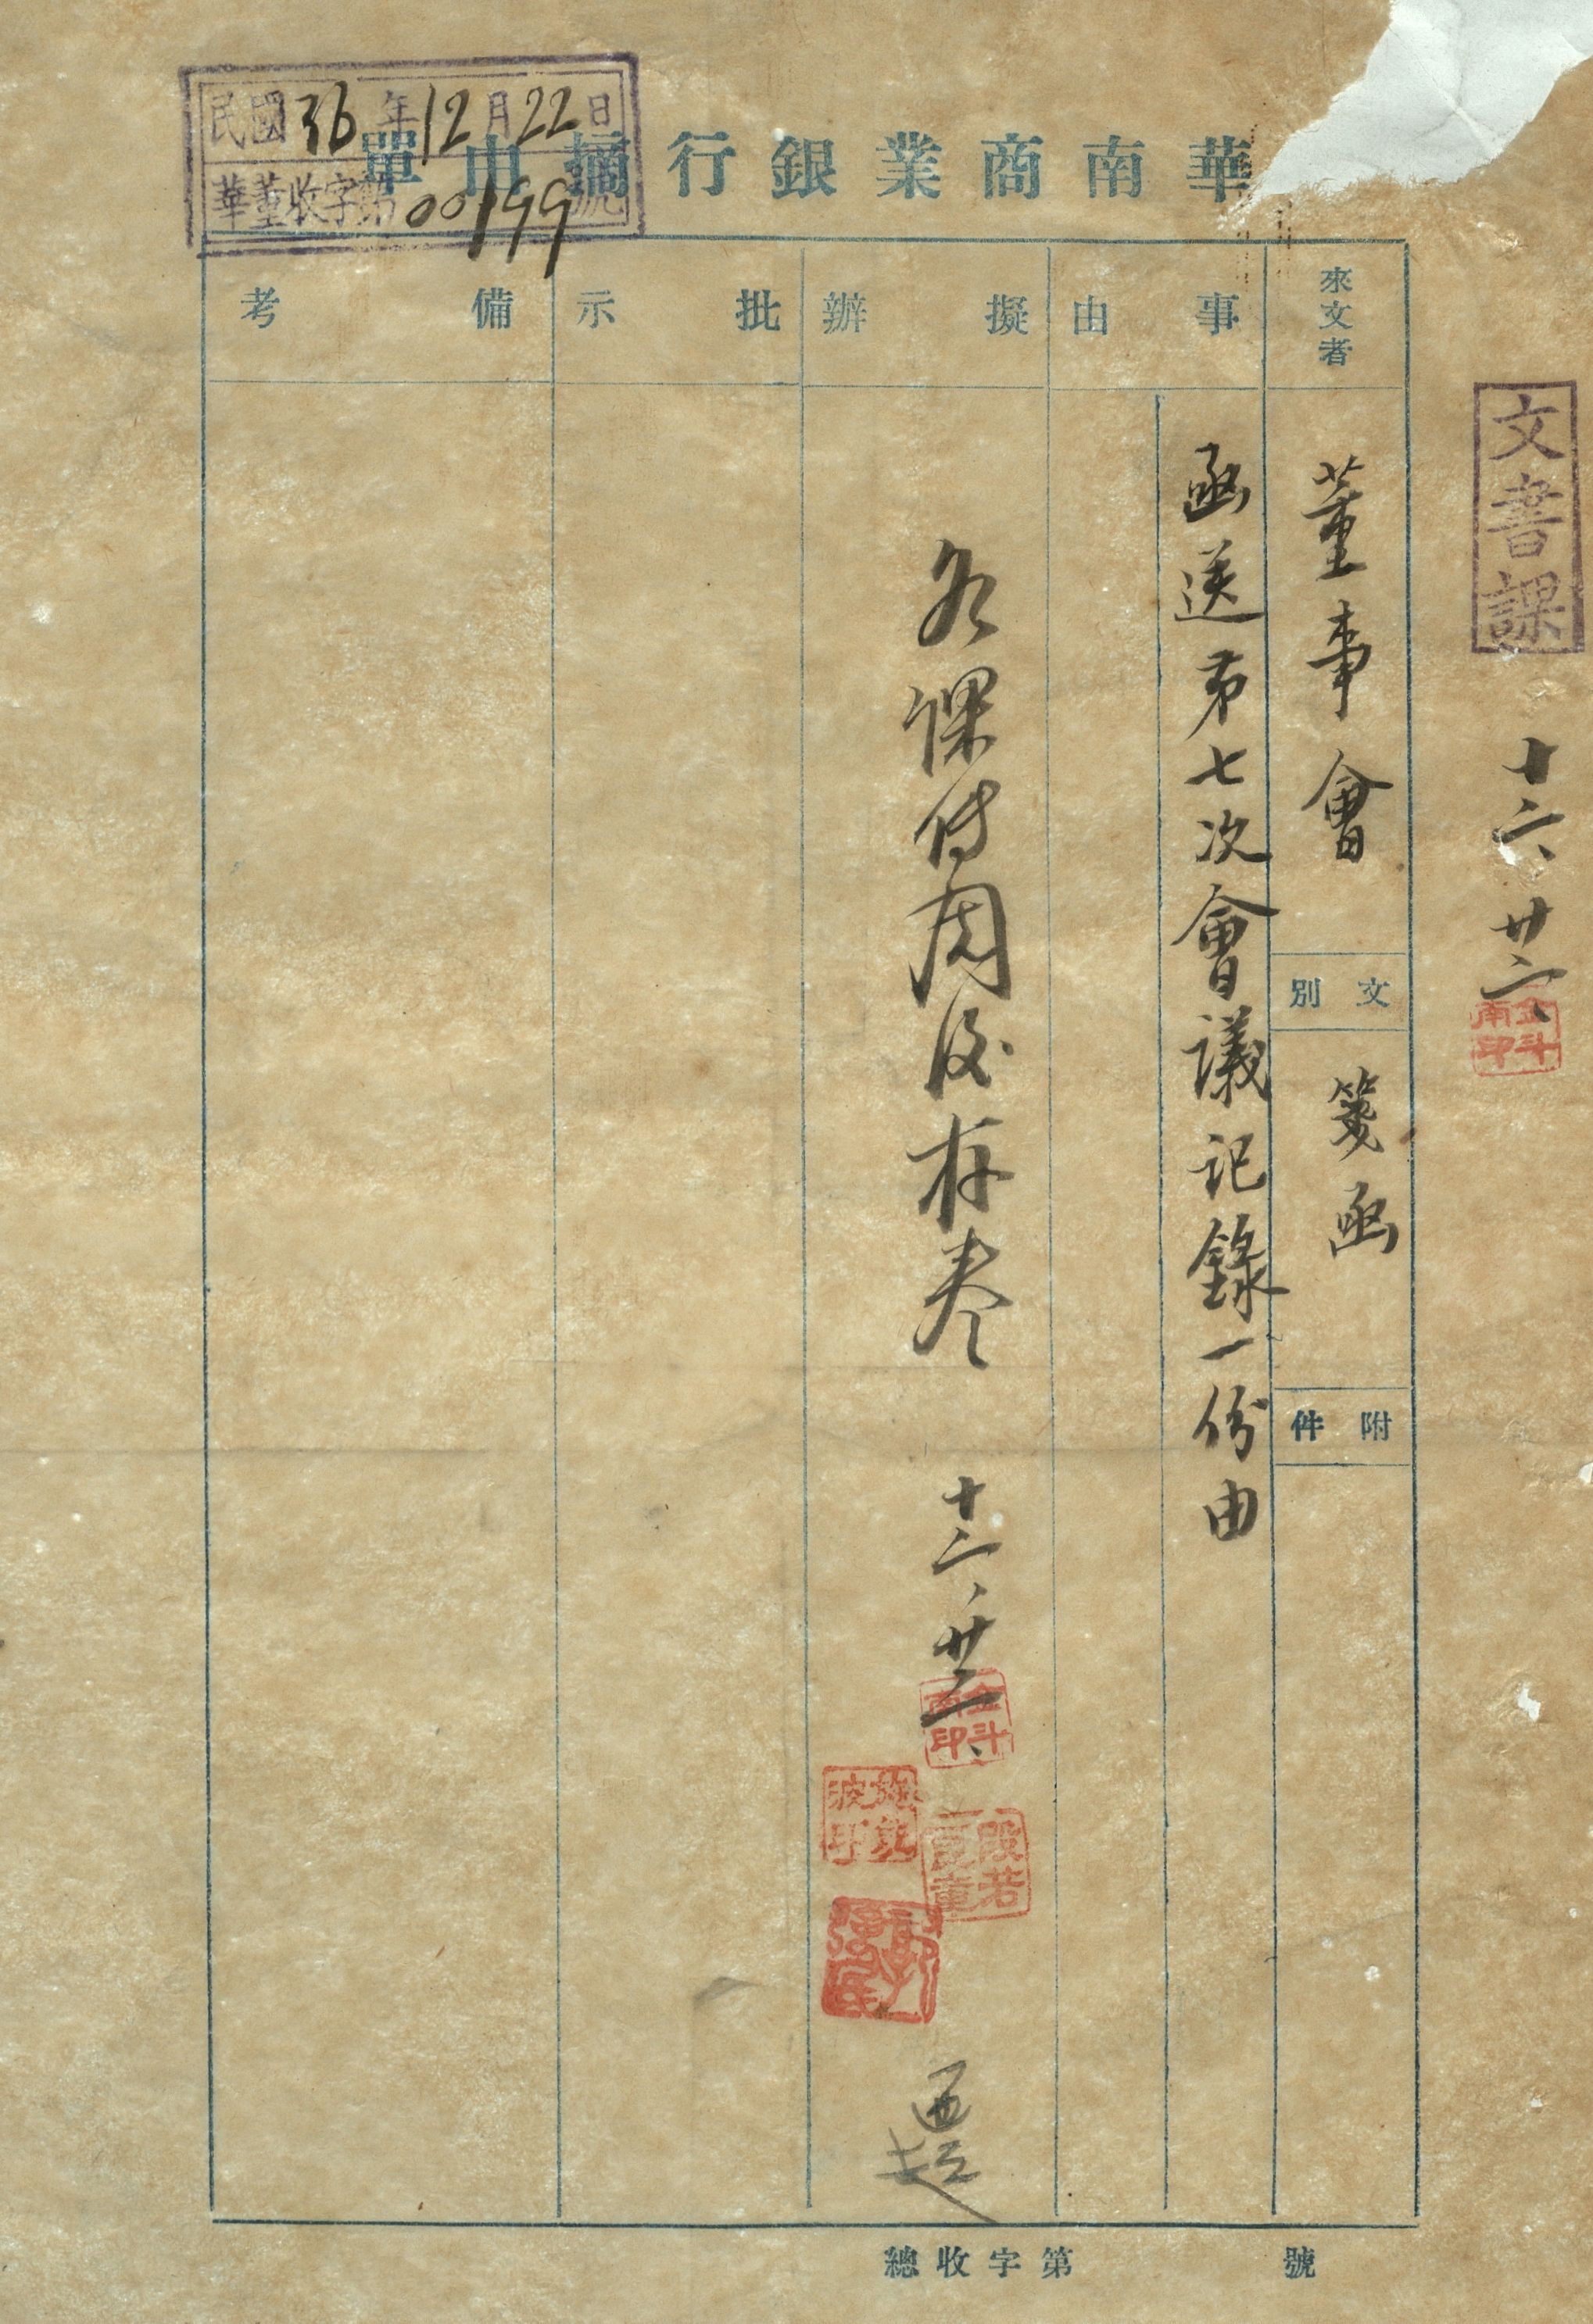 華南商業銀行摘由單
民國36年12月22日
華董收字第00199號
來文者
董事會
文別
箋函
附件
事由
函送第七次會議記錄一份由
擬辦
各課傳閱後存卷
十二、廿二、
金斗南印
殷若
批示
備考
文書課
十二、廿二、
金斗南印
總收字第 號